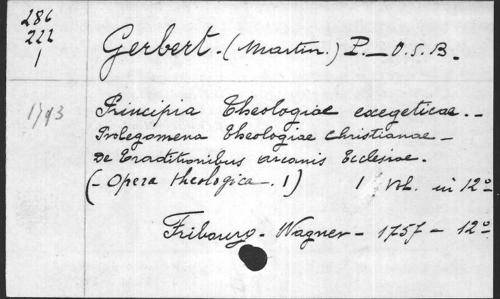 286
222
1
Gerbert. (Martin.) P. _ O.S.B.
1793
Principia Theologiae exegeticae. _
Prolegomena Theologiae christianae _
De Traditionibus arcanis Ecclesiae.
(_ Opera theologica. 1) 1 Vol. in 12°
Fribourg. Wagner _ 1757 _ 12°